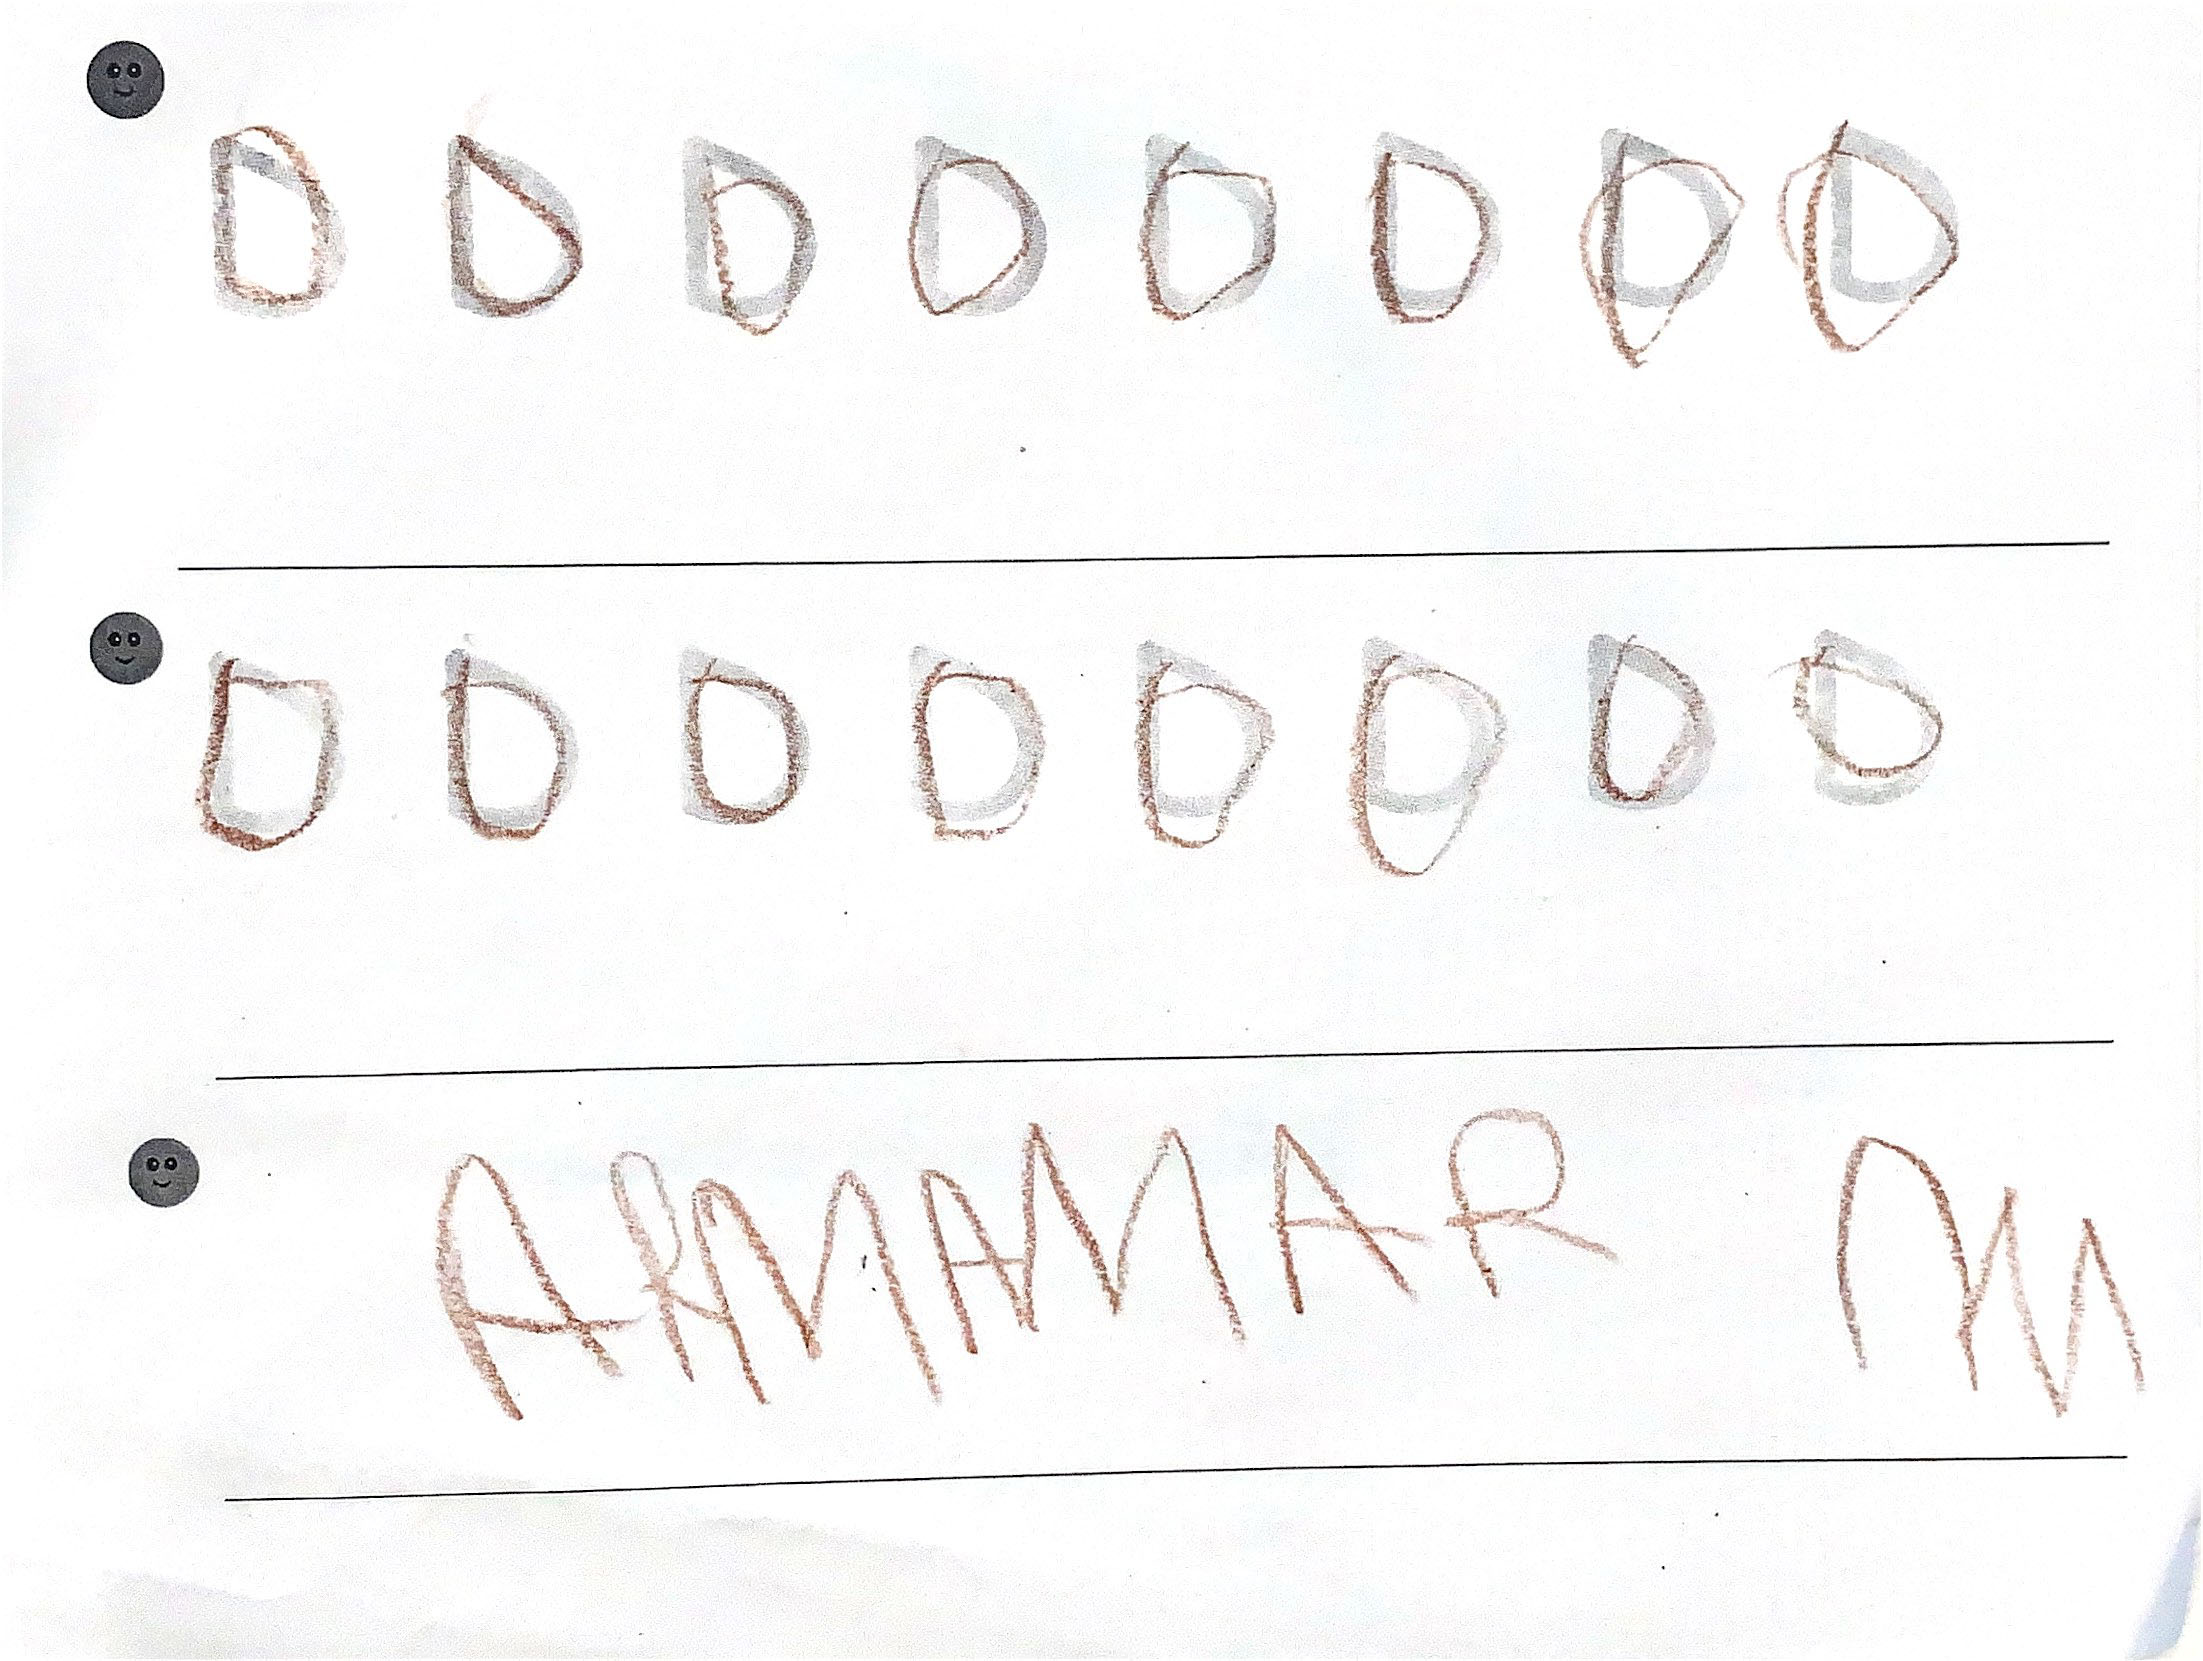 D D D D D D D D
D D D D D D D D
ARMAMAR M